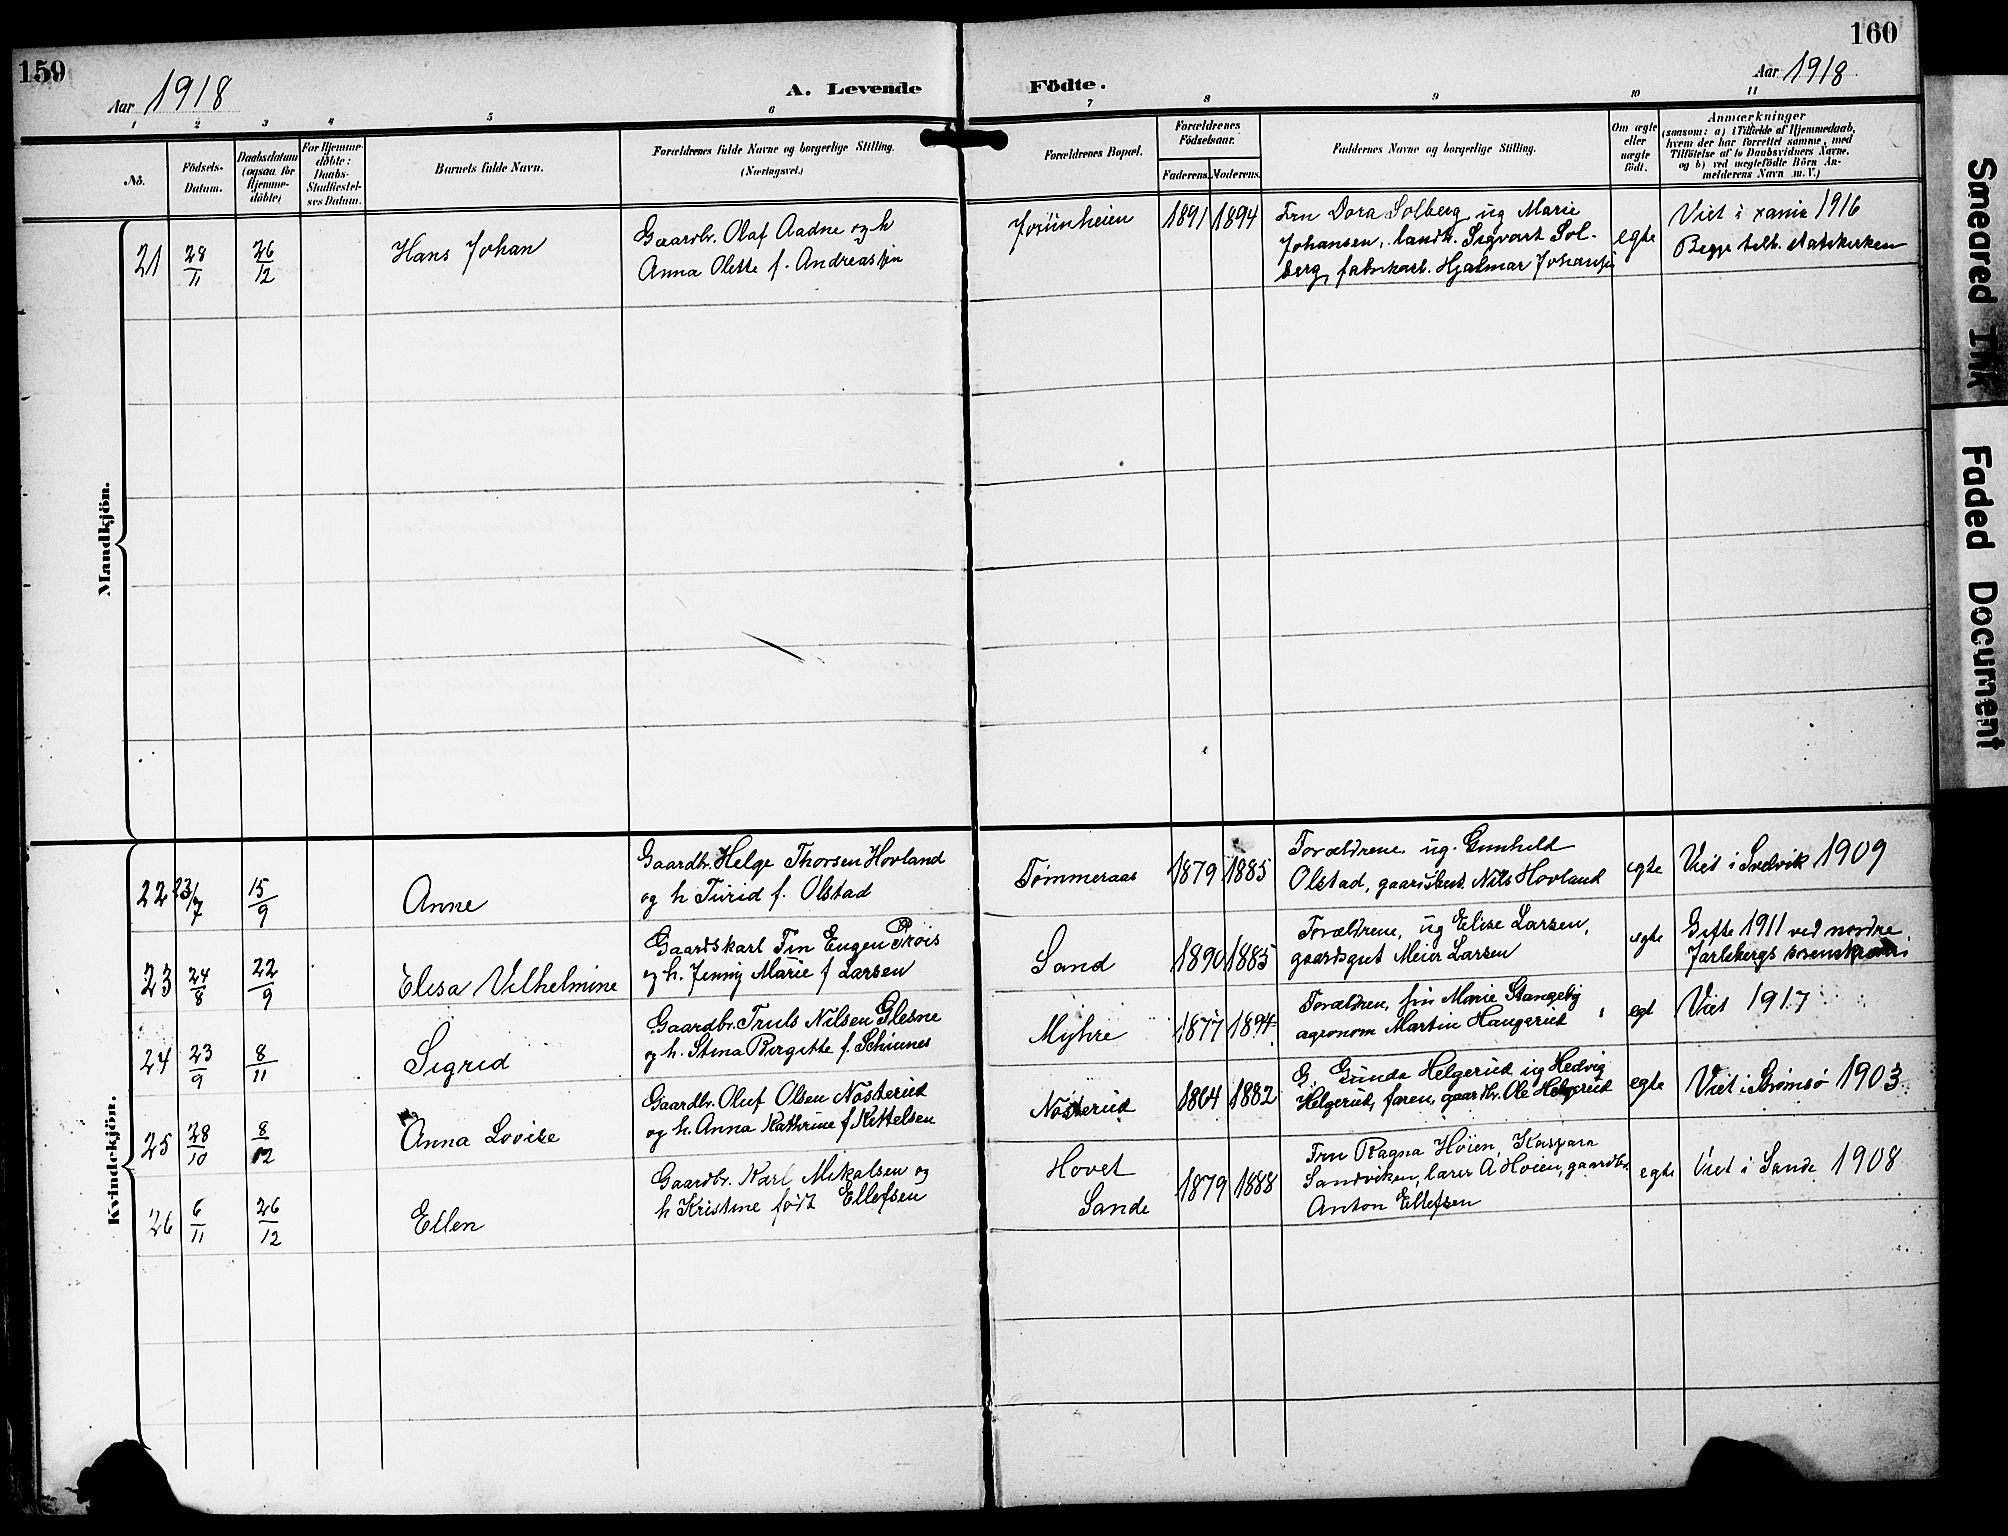 159
160
Aar 1918
A. Levende Födte.
Aar 1918
1 2 3 4 5 6 7 8 9 10 11
No.
Födsels-
Datum.
Daabsdatum
(ogsaa for
Hjemme-
döbte)
For Hjemme-
döbte:
Daabs-
Stadfæstel-
ses Datum.
Barnets fulde Navn.
Forældrenes fulde Navne og borgerlige Stilling.
(Næringsvei.)
Forældrenes Bopæl.
Forældrenes
Födselsaar.
Faderens. Moderens.
Faddernes Navne og borgerlige Stilling.
Om ægte
eller
uægte
født.
Anmærkninger
(saasom: a) i Tilfælde af Hjemmedaab,
hvem der har forrettet samme, med
Tilföielse af to Daabsvidners Navne.
og b) ved uægtefödte Börn An-
melderens Navn m. V.)
Mandkjön.
21
28/11
26/12
Hans Johan
Gaardbr. Olaf Aadne og h
Anna Olette f. Andreassen
1891 1894
Fru Dora Solberg, ug Marie
Johansen, landh. Sigvart Sol-
berg, fabrikarb. Hjalmar Johansen
egte
Viet i xania 1916
Begge tilh. statskirken
Kvindekjön.
22
23/7
15/9
Anne
Gaardbr. Helge Thorsen Hovland
og h Turid f. Olstad
Tömmeraas
1879 1885
Forældrene, ug. Gunhild
Olstad, gaardbest. Nils Hovland
egte
Viet i Svelvik 1909
23
24/8
22/9
Elisa Vilhelmine
Gaardskarl Fin Eugen Prøis
og h. Jenny Marie f Larsen
Sand
1890 1885
Forældrene, ug Elise Larsen,
gaardsgut Meier Larsen
egte
Gifte 1911 ved nordre
Jarlsbergs sorenskriveri
24
23/9
8/11
Sigrid
Gaardbr. Truls Nilsen Glesne
og h. Stina Birgitte f. Schinnes
Myhre
1877 1894
Forældrene, fru Marie Stangeby
agronom Martin Haugerud
egt
Viet 1917
25
28/10
8/12
Anna Lovise
Gaardbr. Oluf Olsen Nøsterud
og h. Anna Kathrine f Kittelsen
Nøsterud
1864 1882
G. Gunda Helgerud ug Hedvig
Helgerud, faren, gaardbr. Ole Helgerud
egte
Viet i Strømsø 1903
26
6/11
26/12
Ellen
Gaardbr. Karl Mikalsen og
h Kristine født Ellefsen
Hovet
Sande
1879 1888
Fru Ragna Høien, Kaspara
Sandviken, lærer A Høien, gaardbr.
Anton Ellefsen
egte
Viet i Sande 1908
Smeared Ink
Faded Document